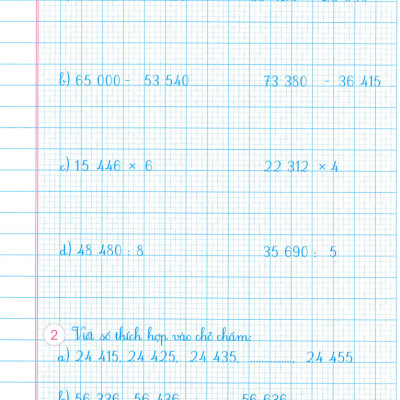 b) 65 000 - 53 540 73 380 - 36 415
c) 15 446 × 6 22 312 × 4
d) 48 480 : 8 35 690 : 5
2 Viết số thích hợp vào chỗ chấm:
a) 24 415, 24 425, 24 435, ................, 24 455
b) 56 336 56 436 56 636